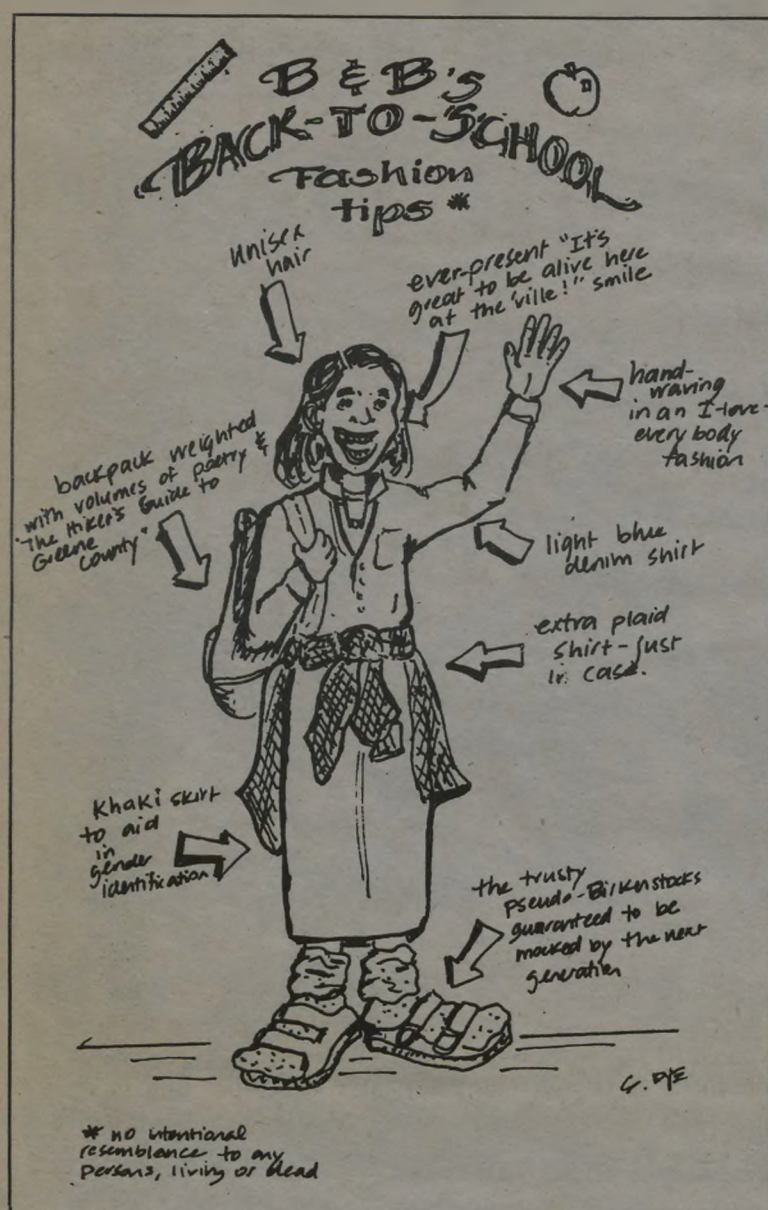 B & B's
BACK-TO-SCHOOL
Fashion
tips *
unisex
hair
ever-present "It's
great to be alive here
at the 'ville!" smile
hand-
waving
in an I-love-
everybody
fashion
backpack weighted
with volumes of poetry &
"The Hiker's Guide to
Greene
County"
light blue
denim shirt
extra plaid
shirt-just
in case.
Khaki skirt
to aid
in
gender
identification
the trusty
pseudo-Birkenstocks
guaranteed to be
mocked by the next
generation
G. DYE
* no intentional
resemblance to any
persons, living or dead